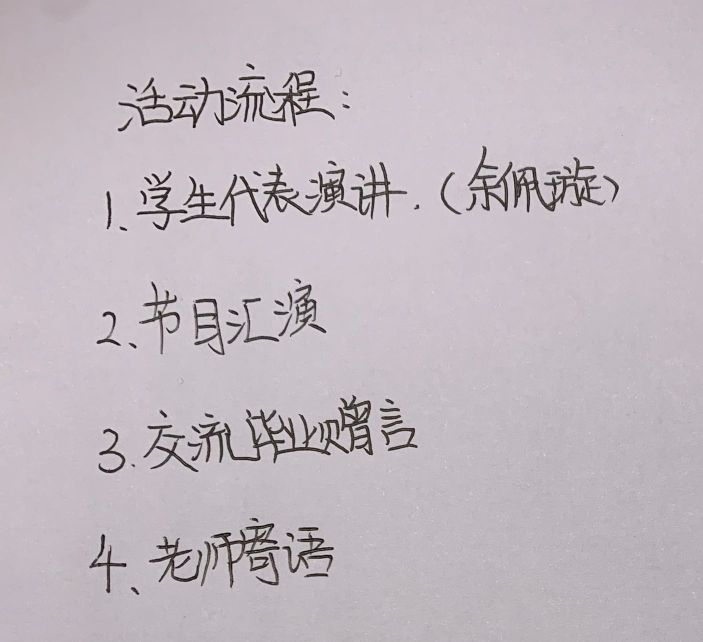 活动流程：
1、学生代表演讲.（余佩璇）
2、节目汇演
3.交流毕业赠言
4、老师寄语